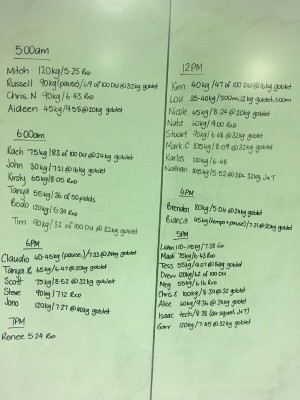 5:00am
Mitch 120kg/5:25 Rxd
Russell 90kg(pause)/69 of 100 DU @16kg goblet
Chris N 90kg/6:43 Rxd
Aideen 45kg/9:58@20kg goblet
6:00am
Rach 75kg/83 of 100 DU @24kg goblet
John 30kg/7:21@16kg goblet
Kirsty 65kg/8:05 Rxd
Tanya 55kg/36 of 50
Bodo 120kg/5:34 Rxd
Tim 90kg/32 of 100 DU @32kg goblet
6PM
Claudia 40-45kg(pause)/7:33@24kg goblet
Tanya R 65kg/6:47@20kg goblet
Scott 75kg/8:52@32kg goblet
Steve 90kg/7:12 Rxd
Jono 120kg/7:27@40kg goblet
7PM
Renee 5:24 Rxd
12PM
Kim 40kg/47 of 100 DU@16kg goblet
Lou 35-40kg/500m, 12kg goblet, 600m
Nicole 45kg/8:24@20kg goblet
Nata 60kg/9:00 Rxd
Stuart 90kg/6:48@32kg goblet
Mark.C 105kg/8:09@32kg goblet
Karlos 100kg/6:48
Nathan 105kg/5:52@30 32kg J+T
4PM
Brendan 80kg/5:04@24kg goblet
Bianca 45kg(tempo+pause)/7:21@20kg goblet
5PM
110-115kg/7:38 Rxd
Madi 75kg/6:43 Rxd
Tess 55kg/9:07@16kg goblet
Drew 120kg/62 of 100 DU
Meg 55kg/6:16 Rxd
Chris E 100kg/8:39@32 goblet
Alice 60kg/9:36@24kg goblet
Isaac tech/8:38 (air squat, J+T)
Garr 120kg/7:45@32kg goblet